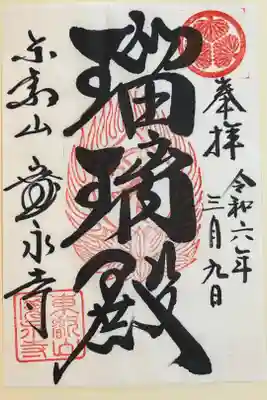 奉拝
令和六年
三月九日
瑠璃殿
東叡山 寛永寺
東叡山
寛永寺